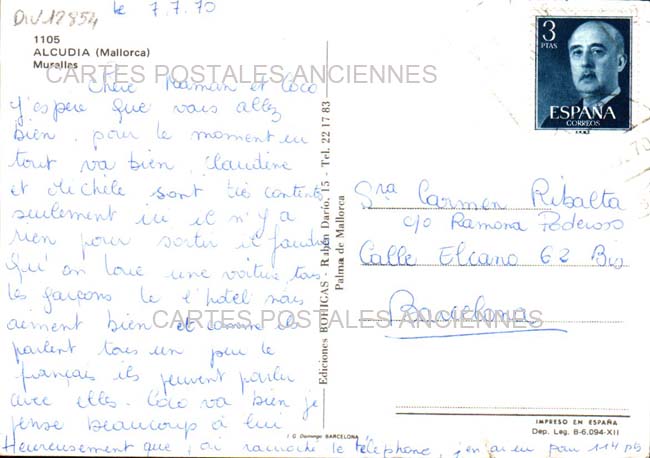 DIV12854
le 7.7.70
1105
ALCUDIA (Mallorca)
Murallas
CARTES POSTALES ANCIENNES
Chère Maman et Coco
J'espère que vous allez
bien, pour le moment ici
tout va bien, Claudine
et Michèle sont très contentes
seulement ici il n'y a
rien pour sortir il faudrait
qu'on loue une voiture, tous
les garçons de l'hotel nous
aiment bien et comme ils
parlent tous un peu le
français ils peuvent parler
avec elles. Coco va bien je
pense beaucoup à lui
Heureusement que j'ai raccroché le téléphone, j'en ai eu pour 114 pts
Ediciones BOHIGAS - Rubén Darío, 15 - Tel. 22 17 83
Palma de Mallorca
I. G. Domingo BARCELONA
3
PTAS
ESPAÑA
CORREOS
70
Sra Carmen Ribalta
c/o Ramona Poderoso
Calle Elcano 62 Bis
Barcelona
CARTES POSTALES ANCIENNES
IMPRESO EN ESPAÑA
Dep. Leg. B-6.094-XII